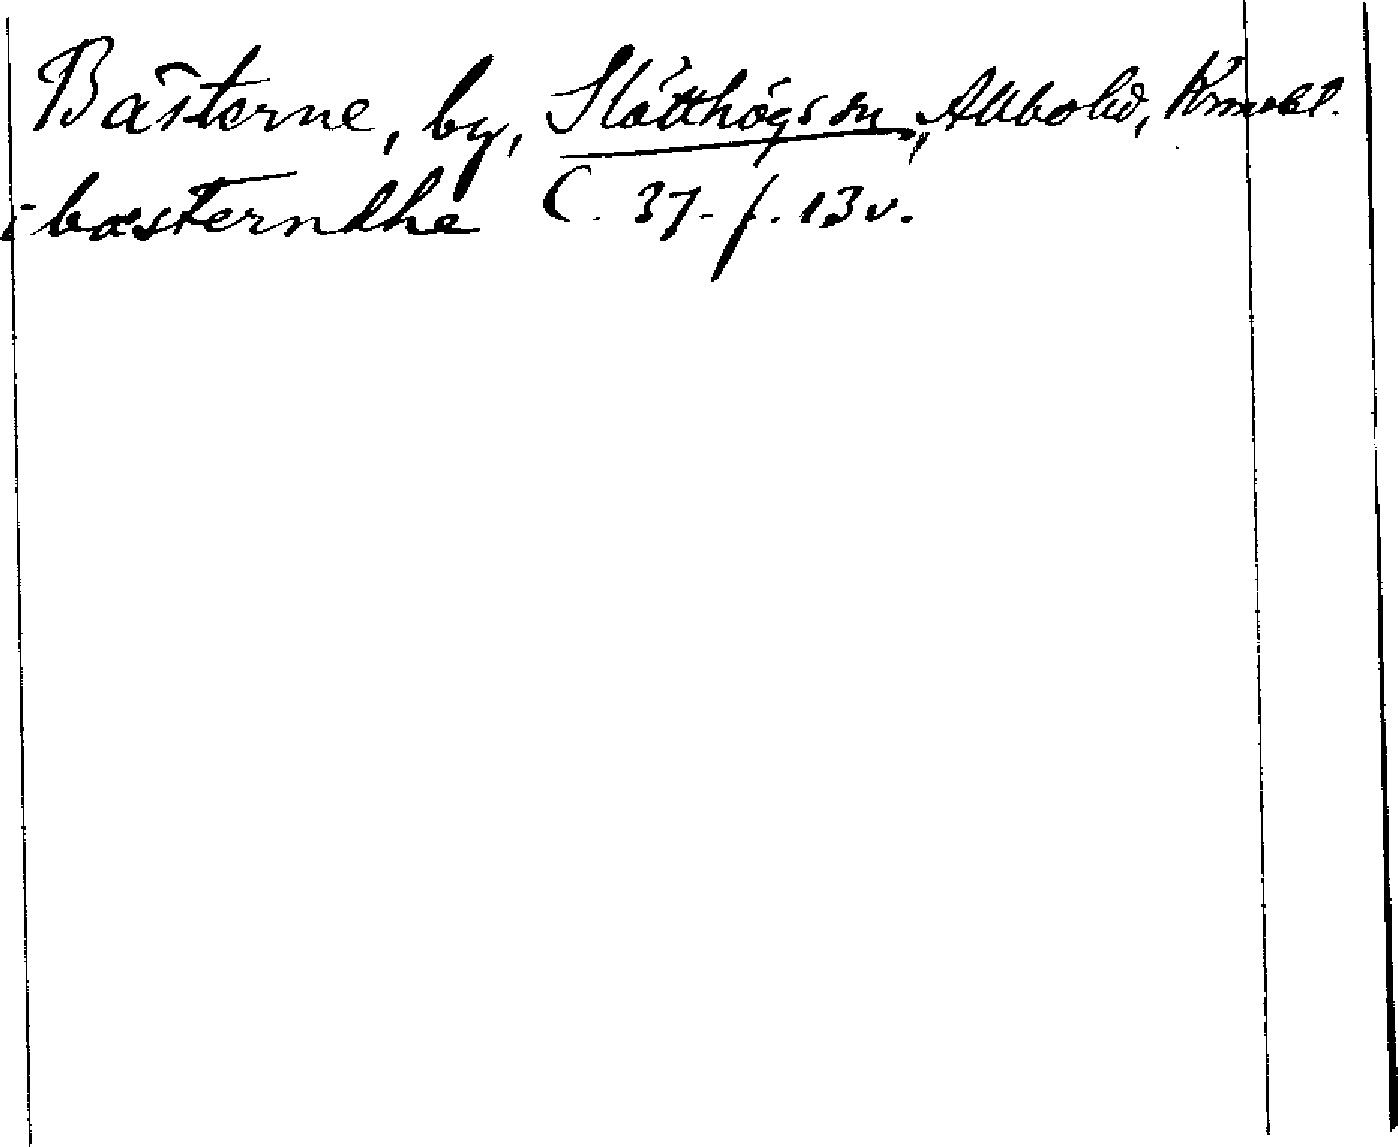 Bästerne, by, Slätthögs sn, Allbo hd, Kronobl.
i bæsterndhe C. 37. f. 13v.